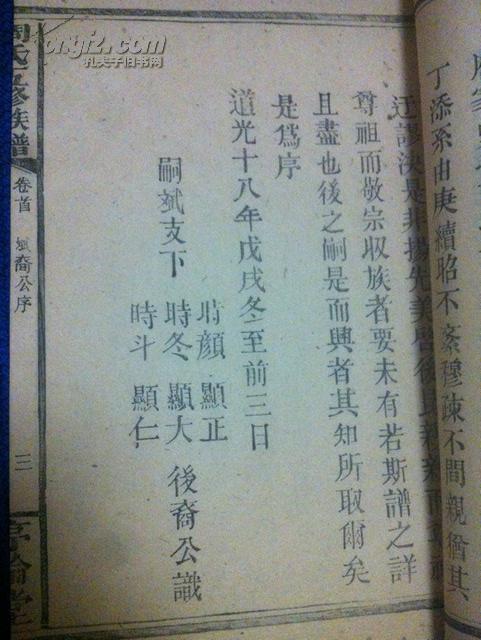 丁添系由庚續昭不紊穆疎不間親猶其
迂謬決是非揚先美啓後
尊祖而敬宗収族者要未有若斯譜之詳
且盡也後之嗣是而興者其知所取爾矣
是爲序
道光十八年戊戌冬至前三日
時顏 顯正
嗣斌支下 時冬 顯大 後裔公識
時斗 顯仁
周氏修族譜 卷首 斌裔公序 三
kongfz.com
孔夫子旧书网